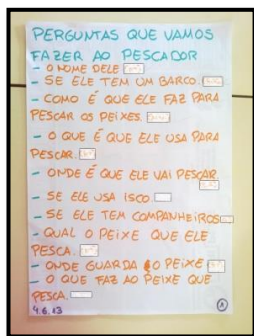 PERGUNTAS QUE VAMOS
FAZER AO PESCADOR
- O NOME DELE
- SE ELE TEM UM BARCO.
- COMO É QUE ELE FAZ PARA
PESCAR OS PEIXES.
- O QUE É QUE ELE USA PARA
PESCAR.
- ONDE É QUE ELE VAI PESCAR
- SE ELE USA ISCO.
- SE ELE TEM COMPANHEIROS
- QUAL O PEIXE QUE ELE
PESCA.
- ONDE GUARDA O PEIXE
- O QUE FAZ AO PEIXE QUE
PESCA.
4.6.13